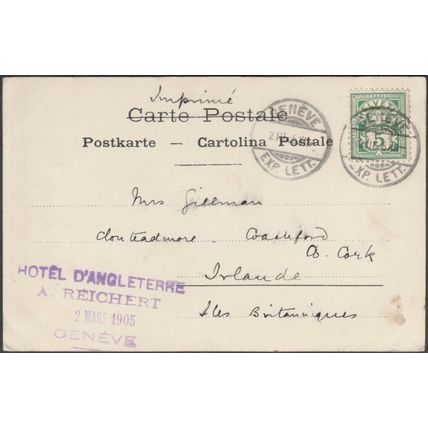 Imprimé
Carte Postale
Postkarte — Cartolina Postale
GENÈVE
EXP. LETT.
HELVETIA
5
GENÈVE
EXP. LETT.
Mrs Gillman
Clonteadmore. Coachford
Co. Cork
Irlande
Iles Britanniques
HOTEL D'ANGLETERRE
A. REICHERT
2 MARS 1905
GENÈVE